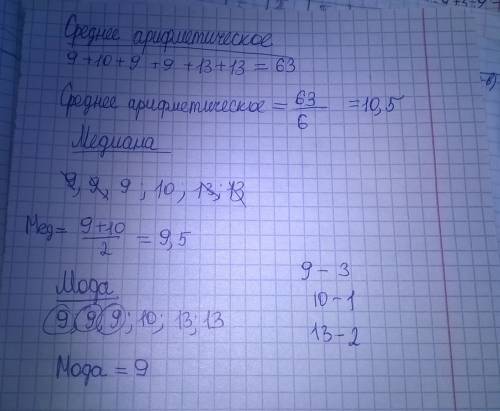 Среднее арифметическое
9+10+9+9+13+13=63
Среднее арифметическое = 63/6 =10,5
Медиана
9, 9, 9; 10, 13; 13
Мед= 9+10/2 = 9,5
Мода
9, 9, 9; 10; 13; 13
Мода = 9
9 - 3
10 - 1
13 - 2